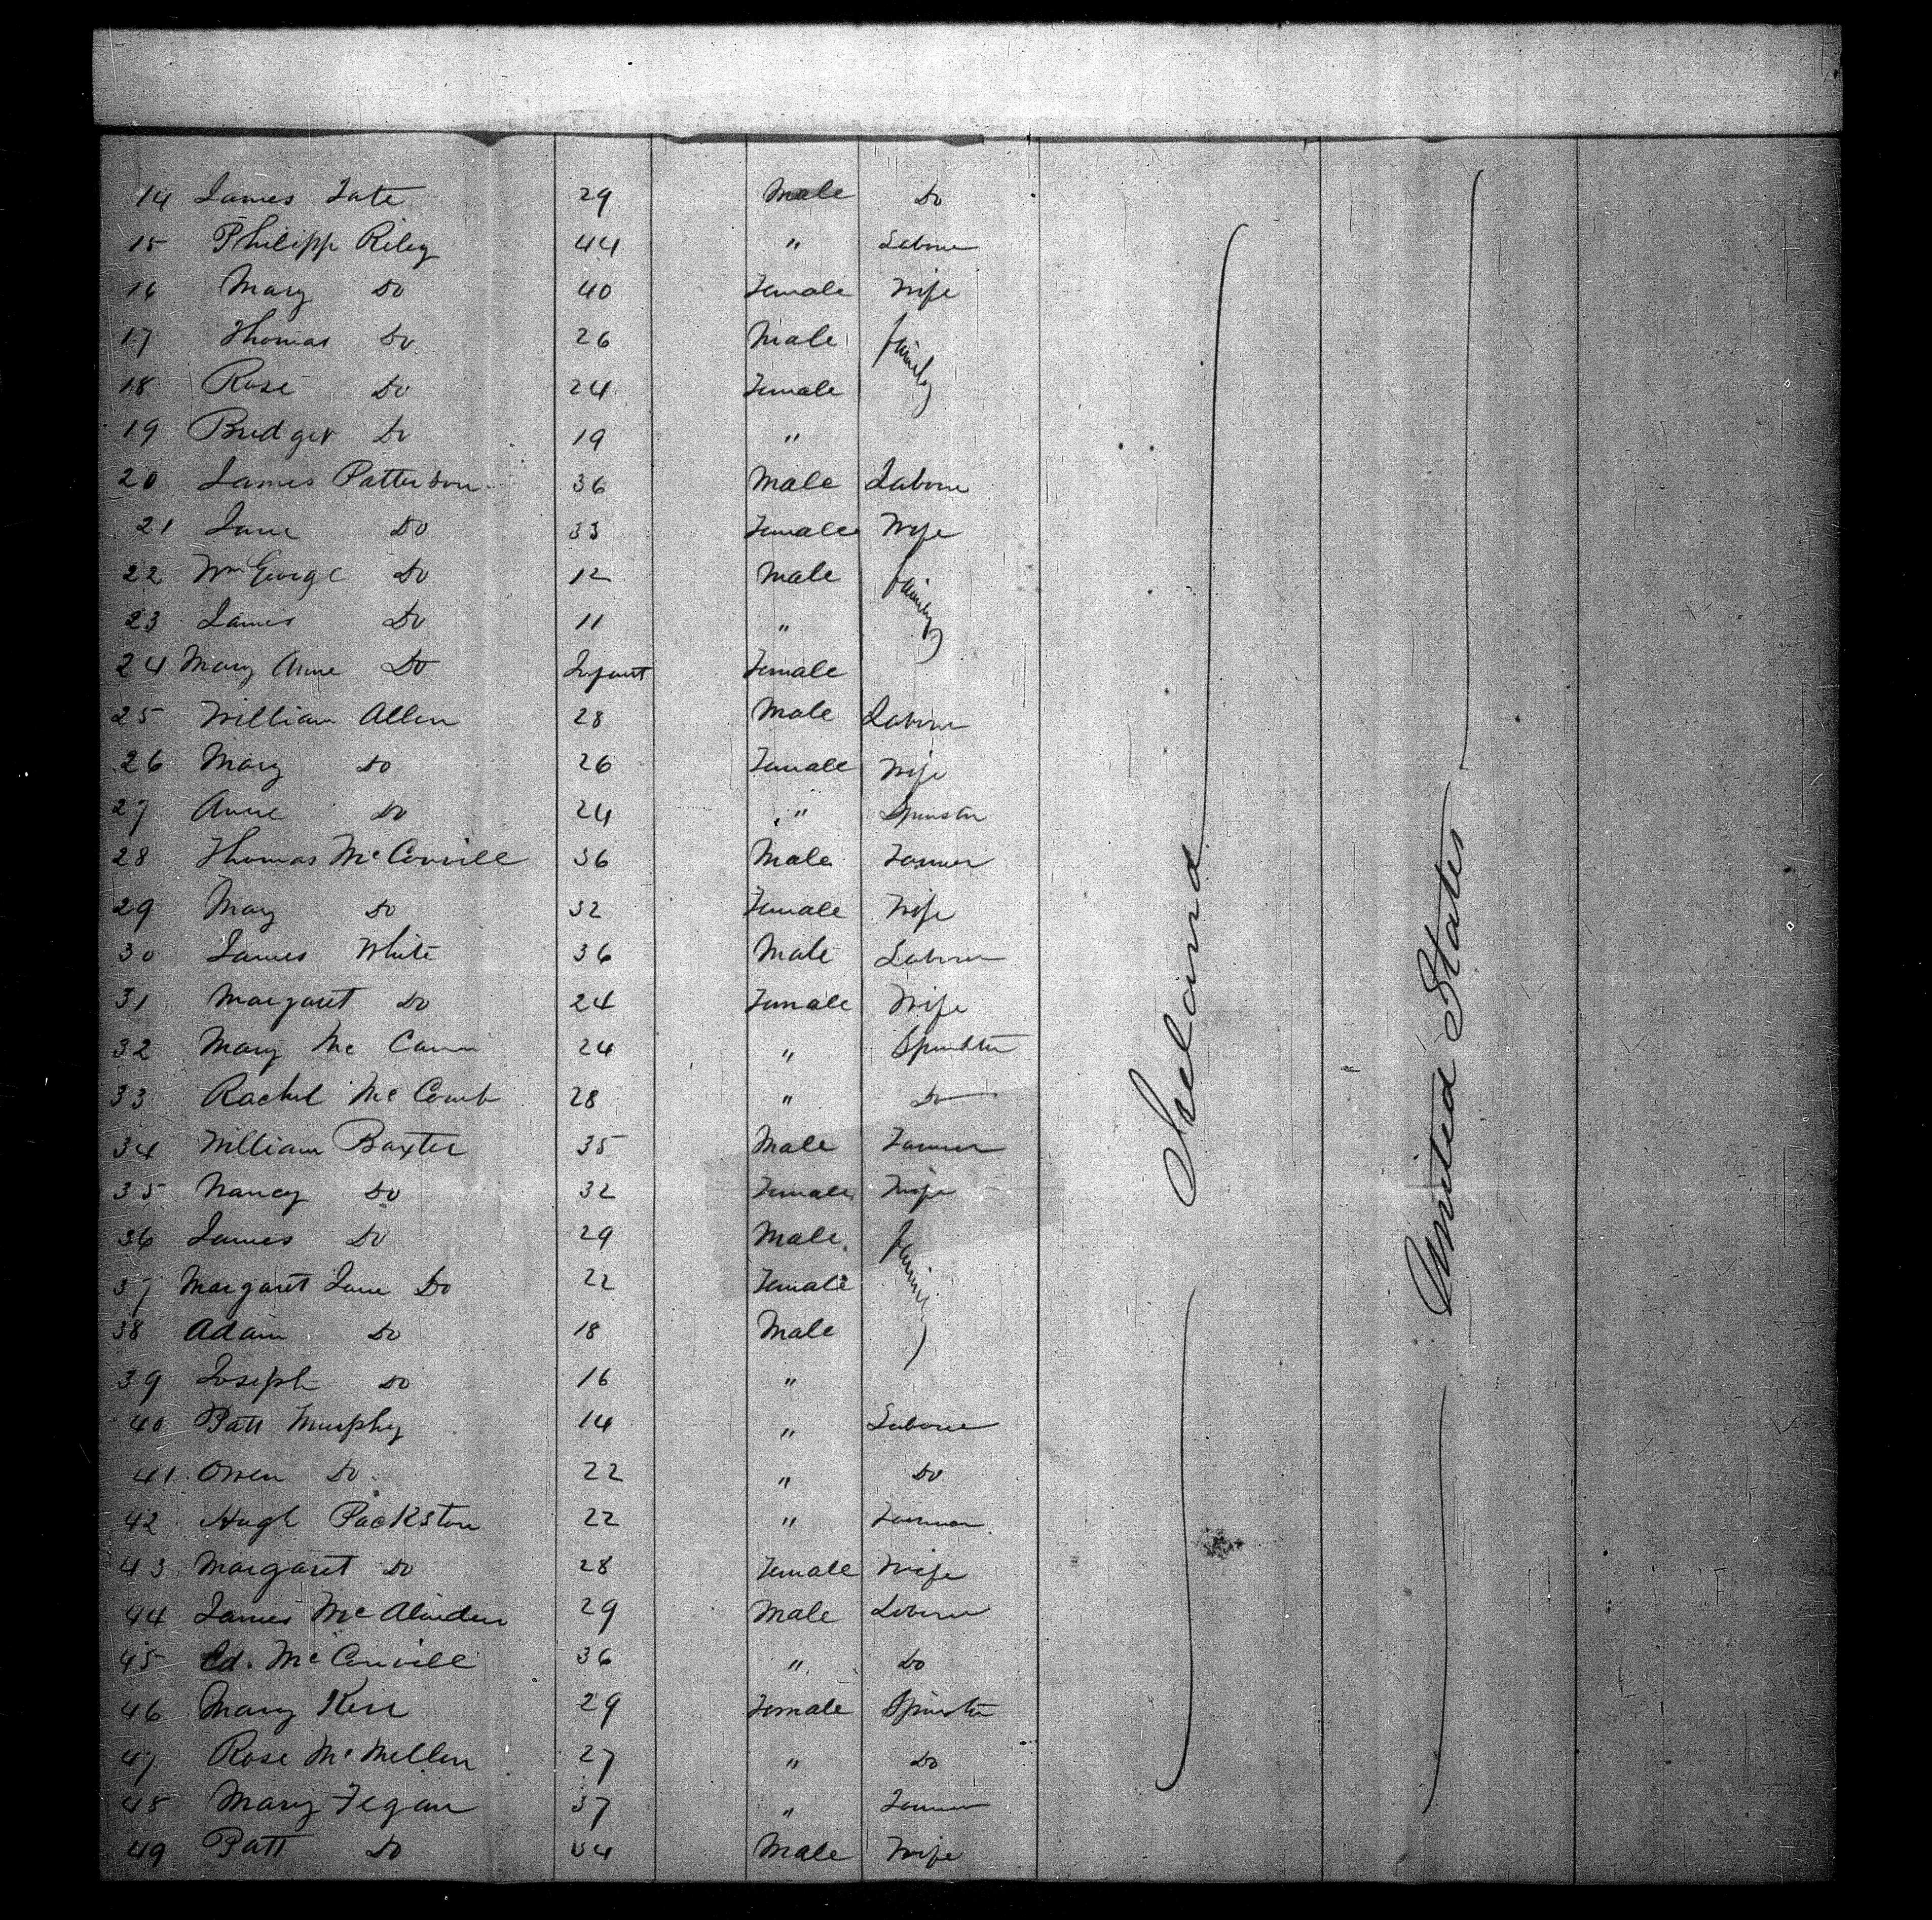 14 James Tate 29 Male Do
15 Philipp Riley 44 " Labourer
16 Mary Do 40 Female Wife
17 Thomas Do 26 Male family
18 Rose Do 24 Female
19 Bridget Do 19 "
20 James Patterson 36 Male Labourer
21 Jane Do 33 Female Wife
22 Wm George Do 12 Male family
23 James Do 11 "
24 Mary Anne Do Infant Female
25 William Allen 28 Male Labourer
26 Mary Do 26 Female Wife
27 Anne Do 24 " Spinster
28 Thomas McConvill 36 Male Farmer
29 Mary Do 32 Female Wife
30 James White 36 Male Labourer
31 Margaret Do 24 Female Wife
32 Mary Mc Cann 24 " Spinster
33 Rachel Mc Comb 28 " Do
34 William Baxter 35 Male Farmer
35 Nancy Do 32 Female Wife
36 James Do 29 Male family
37 Margaret Jane Do 22 Female
38 Adam Do 18 Male
39 Joseph Do 16 "
40 Patt Murphy 14 " Labourer
41 Owen Do 22 " Do
42 Hugh Packston 22 " Farmer
43 Margaret Do 28 Female Wife
44 James McAlinden 29 Male Labourer
45 Ed. McConvill 36 " Do
46 Mary Kerr 29 Female Spinster
47 Rose McMillen 27 " Do
48 Mary Fegan 37 " Farmer
49 Patt Do 34 Male Wife
Ireland
United States